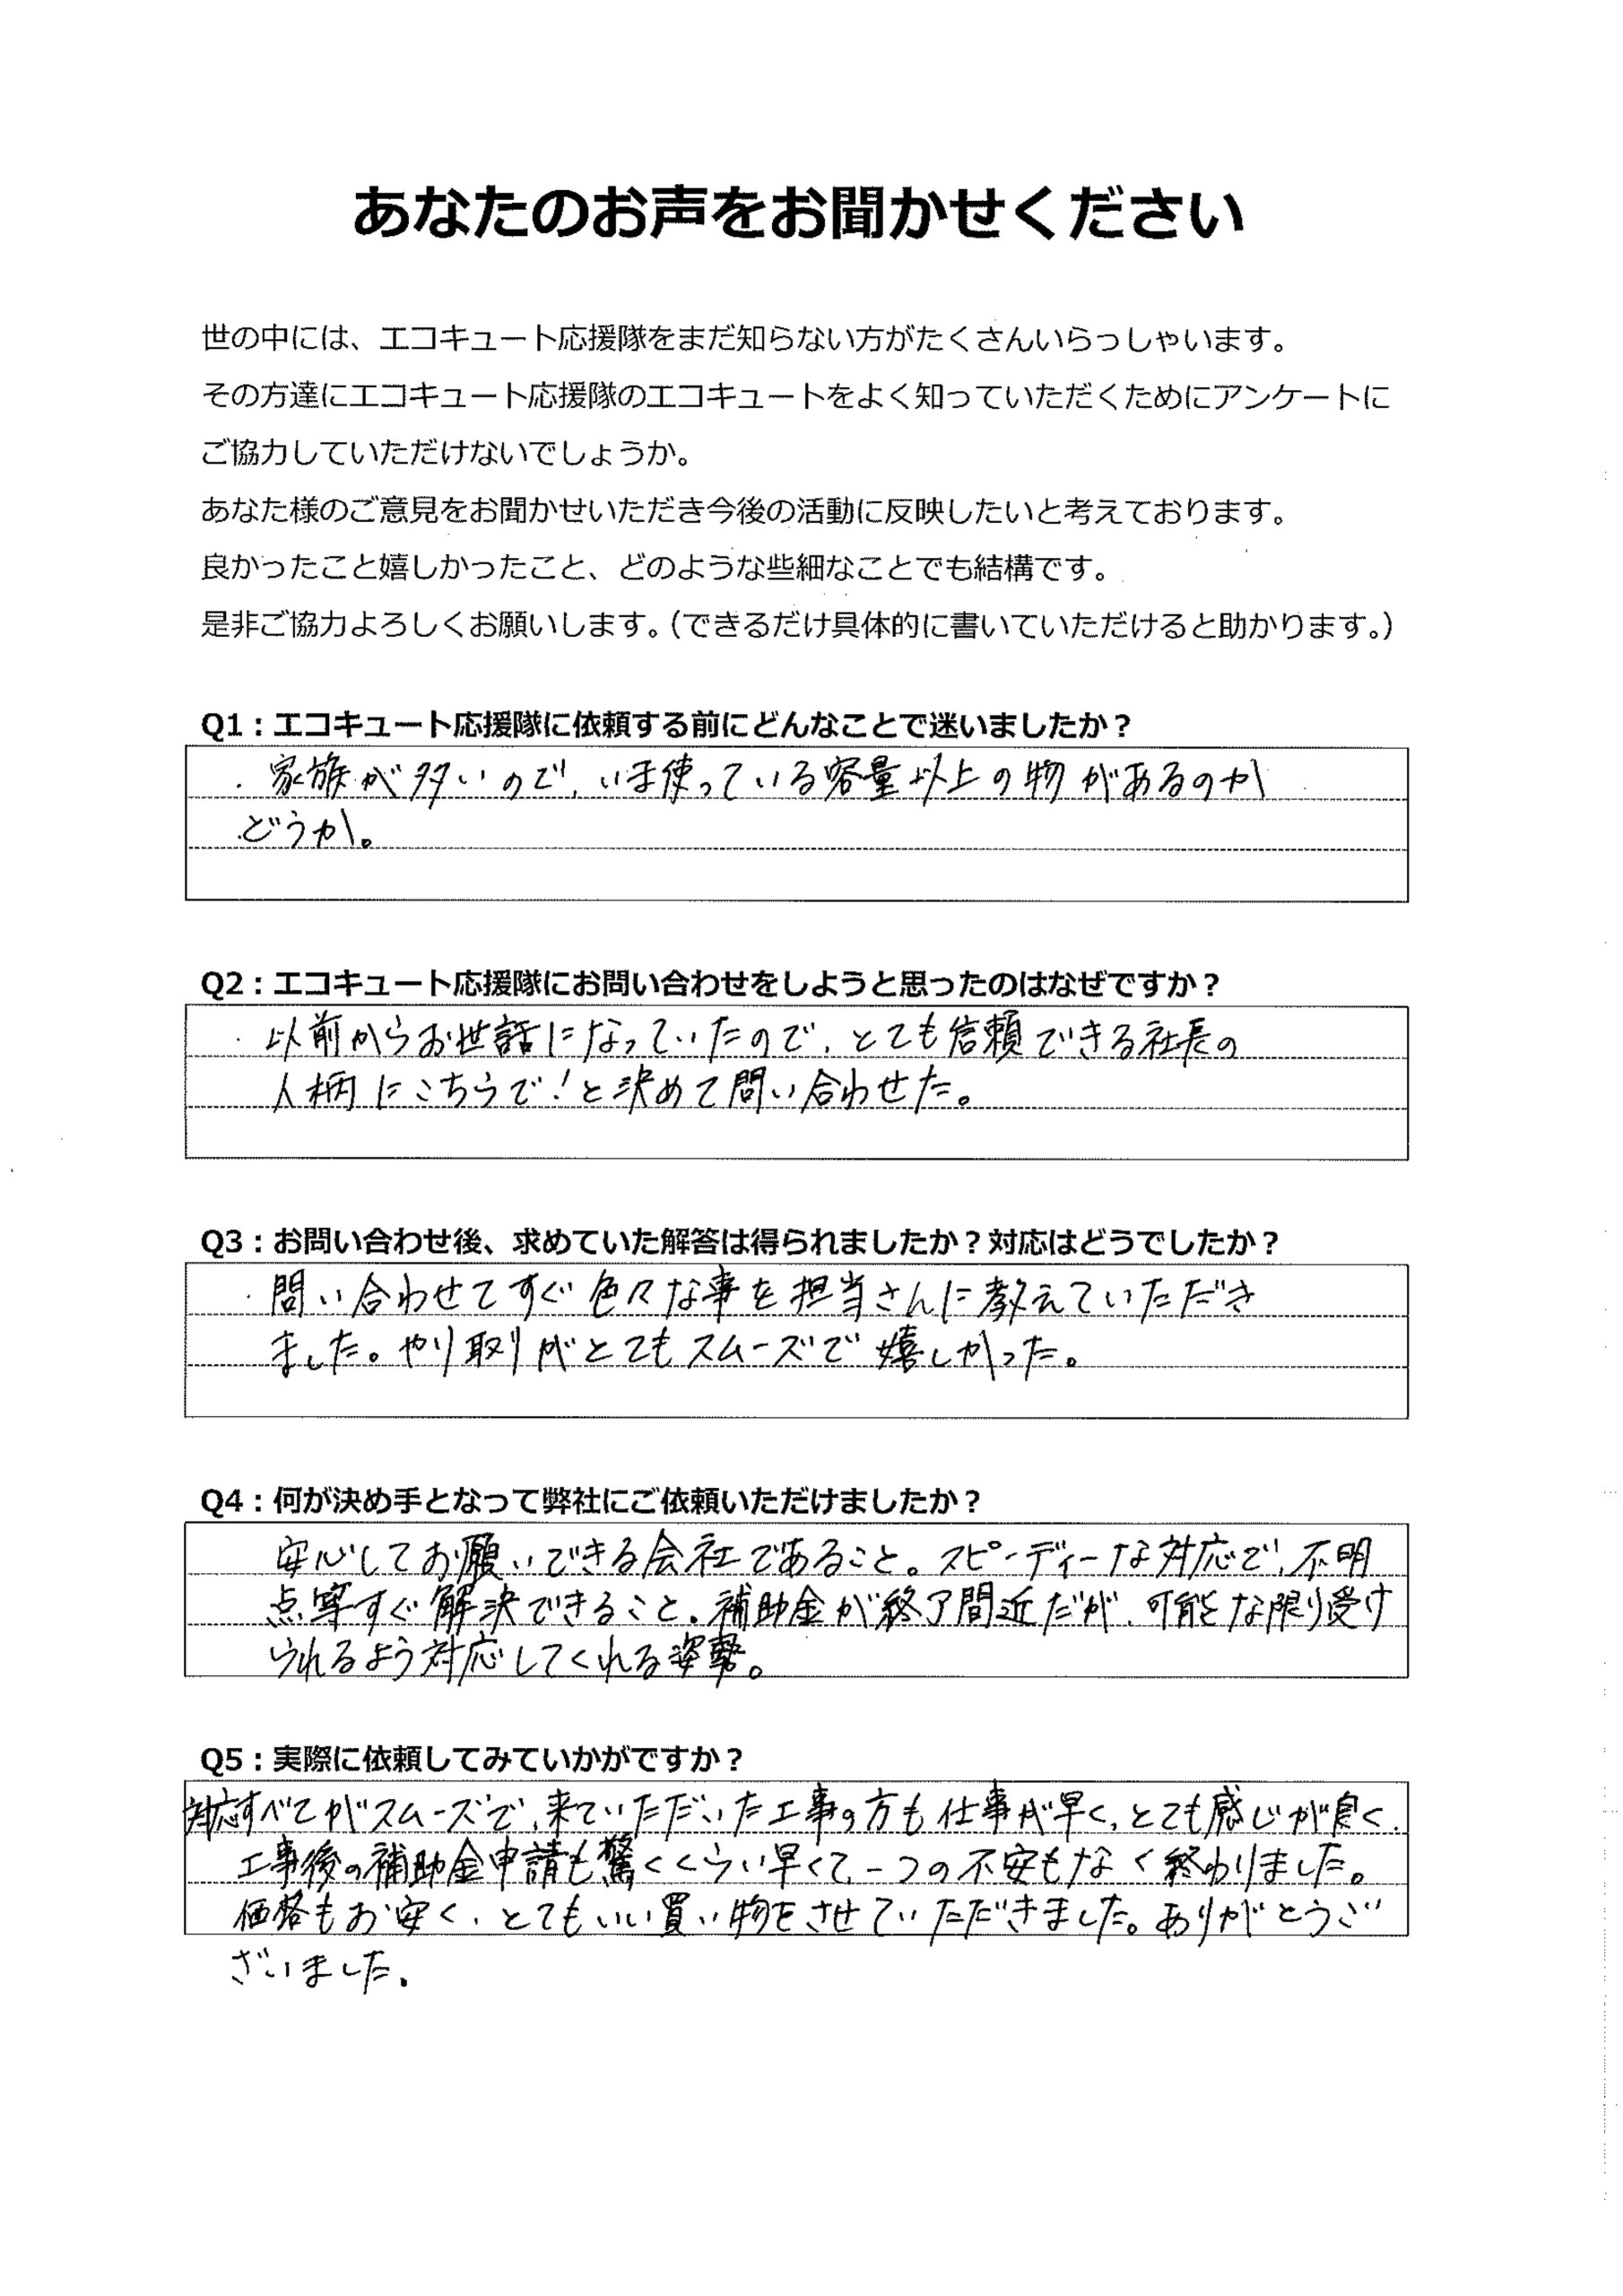 あなたのお声をお聞かせください
世の中には、エコキュート応援隊をまだ知らない方がたくさんいらっしゃいます。
その方達にエコキュート応援隊のエコキュートをよく知っていただくためにアンケートに
ご協力していただけないでしょうか。
あなた様のご意見をお聞かせいただき今後の活動に反映したいと考えております。
良かったこと嬉しかったこと、どのような些細なことでも結構です。
是非ご協力よろしくお願いします。（できるだけ具体的に書いていただけると助かります。）
Q1：エコキュート応援隊に依頼する前にどんなことで迷いましたか？
・家族が多いので、いま使っている容量以上の物があるのか
どうか。
Q2：エコキュート応援隊にお問い合わせをしようと思ったのはなぜですか？
・以前からお世話になっていたので、とても信頼できる社長の
人柄にこちらで！と決めて問い合わせた。
Q3：お問い合わせ後、求めていた解答は得られましたか？対応はどうでしたか？
・問い合わせてすぐ色々な事を担当さんに教えていただき
ました。やり取りがとてもスムーズで嬉しかった。
Q4：何が決め手となって弊社にご依頼いただけましたか？
安心してお願いできる会社であること。スピーディーな対応で、不明
点等すぐ解決できること。補助金が終了間近だが、可能な限り受け
られるよう対応してくれる姿勢。
Q5：実際に依頼してみていかがですか？
対応すべてがスムーズで、来ていただいた工事の方も仕事が早く、とても感じが良く、
工事後の補助金申請も驚くくらい早くて、一つの不安もなく終わりました。
価格もお安く、とてもいい買い物をさせていただきました。ありがとうご
ざいました。